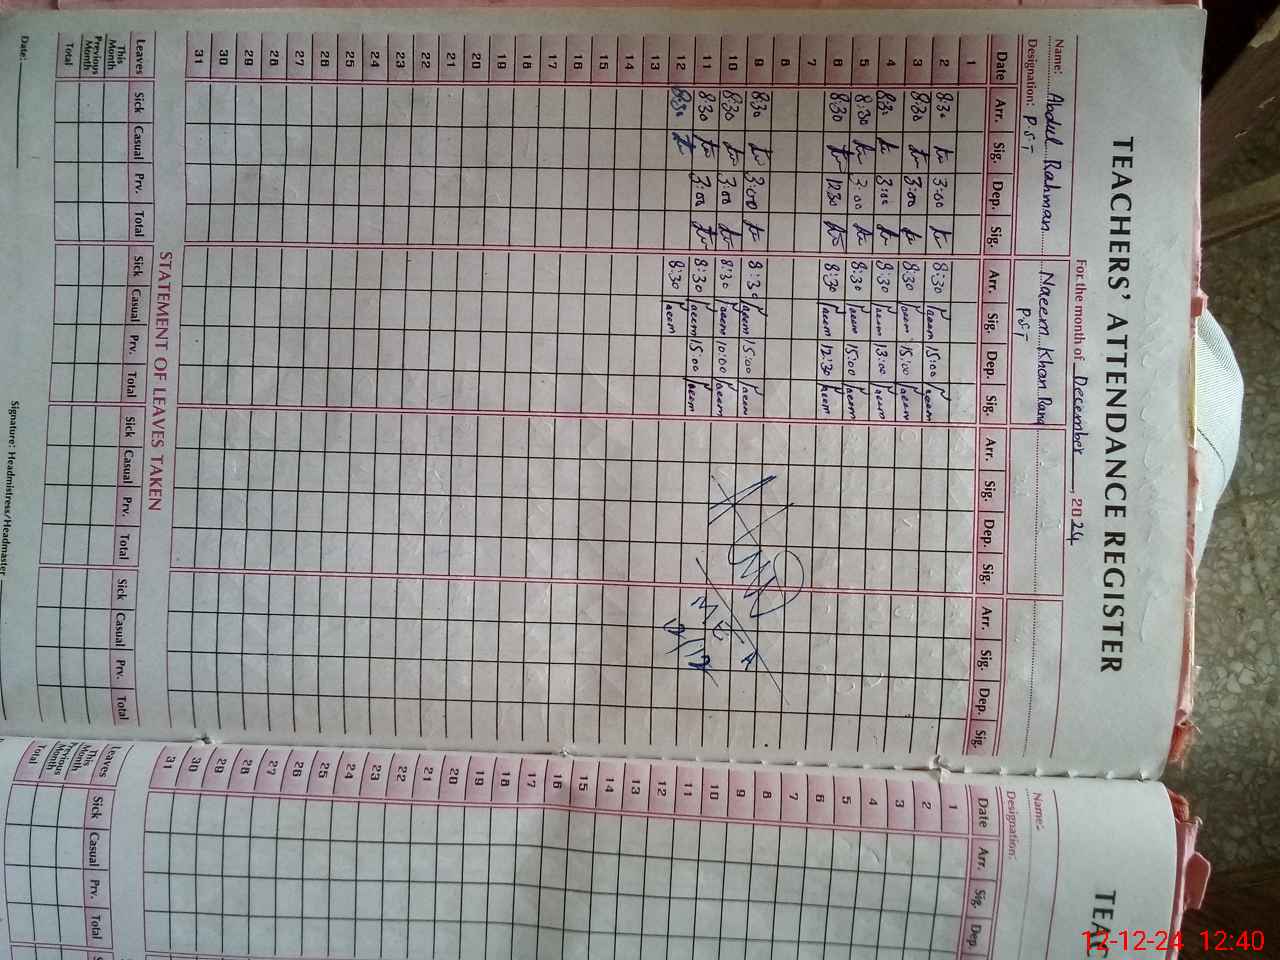 TEACHERS' ATTENDANCE REGISTER
For the month of December, 2024
Name: Abdul Rahman Naeem Khan Rana
Designation: P.S.T P.S.T
Date Arr. Sig. Dep. Sig. Arr. Sig. Dep. Sig. Arr. Sig. Dep. Sig. Arr. Sig. Dep. Sig.
1
2 8:30 3:00 8:30 Naeem 15:00 Naeem
3 8:30 3:00 8:30 Naeem 15:00 Naeem
4 8:30 3:00 8:30 Naeem 13:00 Naeem
5 8:30 3:00 8:30 Naeem 15:00 Naeem
6 8:30 1230 8:30 Naeem 12:30 Naeem
7
8
9 8:30 3:00 8:30 Naeem 15:00 Naeem
10 8:30 3:00 8:30 Naeem 10:00 Naeem
11 8:30 3:00 8:30 Naeem 15:00 Naeem
12 8:30 8:30 Naeem
13
14
15
16
17
18
19
20
21
22
23
24
25
26
27
28
29
30
31
STATEMENT OF LEAVES TAKEN
Leaves Sick Casual Prv. Total Sick Casual Prv. Total Sick Casual Prv. Total Sick Casual Prv. Total
This Month
Previous Month
Total
Date:
Signature: Headmistress/Headmaster
TEAC
Name:
Designation:
Date Arr. Sig. Dep.
1
2
3
4
5
6
7
8
9
10
11
12
13
14
15
16
17
18
19
20
21
22
23
24
25
26
27
28
29
30
31
Leaves Sick Casual Prv. Total
This Month
Previous Month
Total
12-12-24 12:40